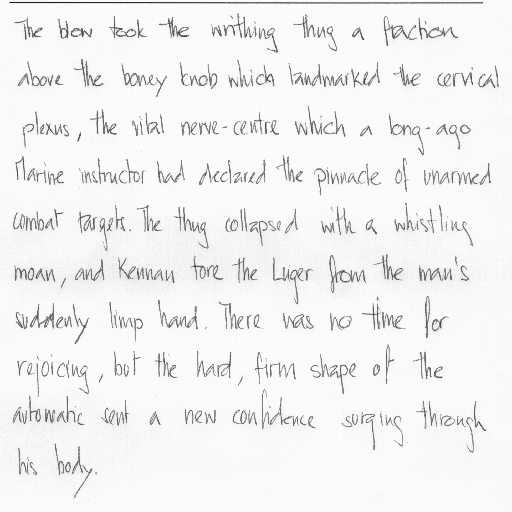 The blow took the writhing thug a fraction
above the boney knob which landmarked the cervical
plexus, the vital nerve-centre which a long-ago
Marine instructor had declared the pinnacle of unarmed
combat targets. The thug collapsed with a whistling
moan, and Kennan tore the Luger from the man's
suddenly limp hand. There was no time for
rejoicing, but the hard, firm shape of the
automatic sent a new confidence surging through
his body.